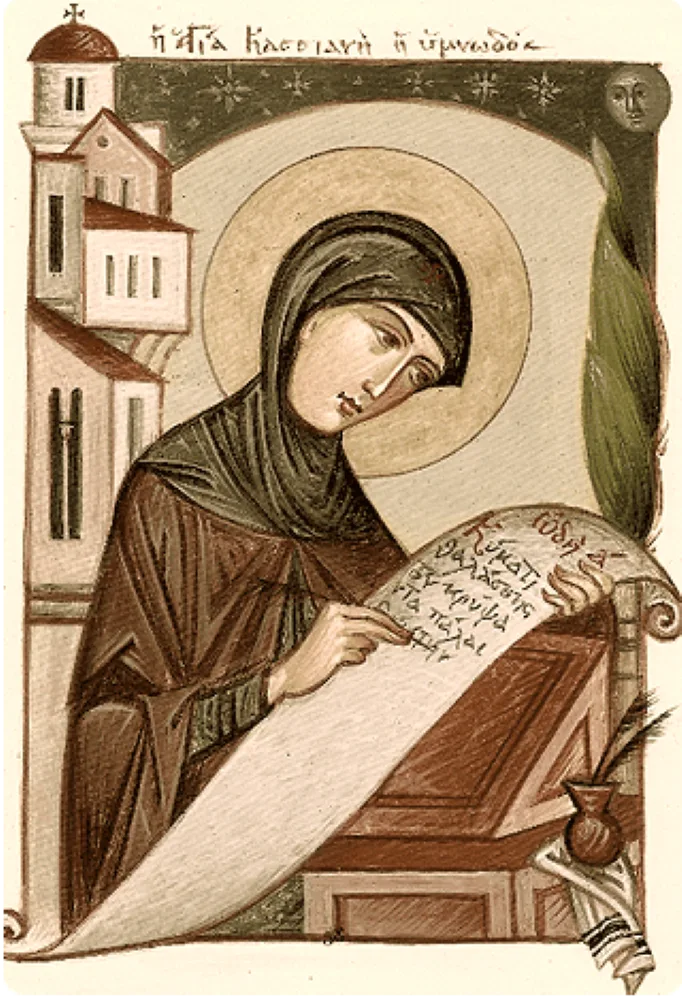 ἡ ἁγία Κασσιανὴ ἡ ὑμνωδὸς
ὠδὴ α-
Κύματι
θαλάσσης
τὸν κρύψα
ντα πάλαι